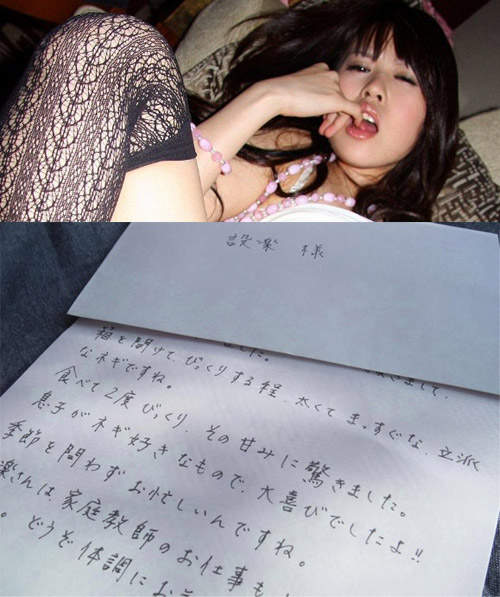 設楽 様
した。
まして、
箱を開けて びっくりする程、太くて まっすぐな、立派
なネギですね。
食べて 2度 びっくり、その甘みに 驚きました。
息子が ネギ好きなもので、大喜びでしたよ!!
季節を問わず お忙しいんですね。
楽さんは 家庭教師のお仕事も
。 どうぞ 体調に お